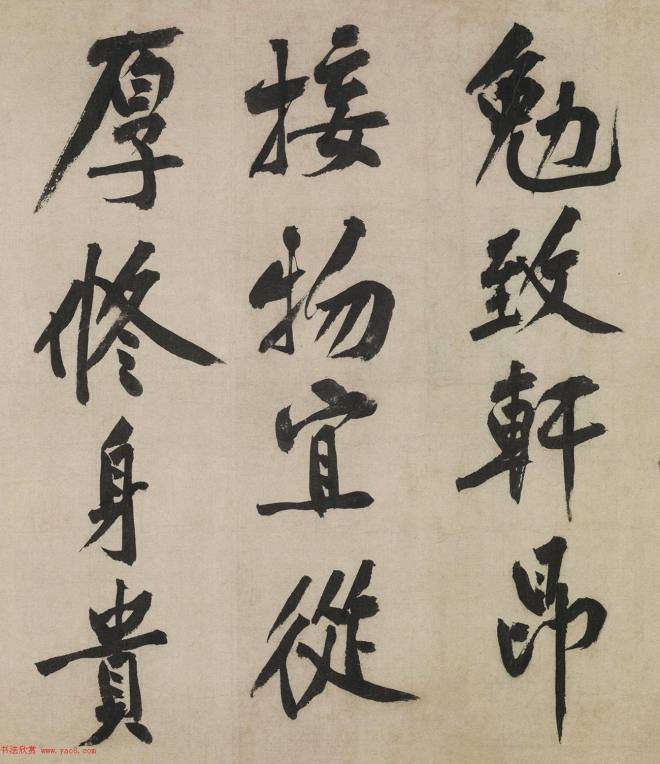 勉致軒昂
接物宜從
厚修身貴
书法欣赏 www.yac8.com